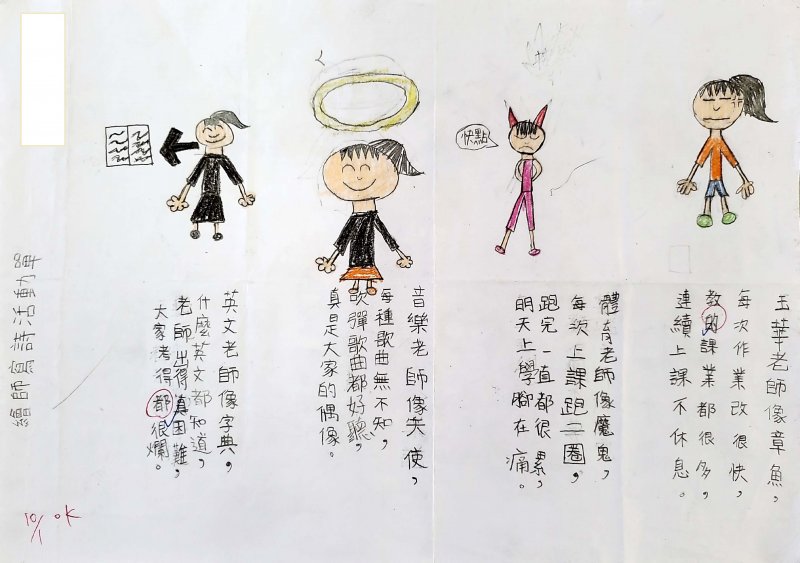 玉華老師像章魚，
每次作業改很快，
教的課業都很多，
連續上課不休息。
快點
體育老師像魔鬼，
每次上課跑二圈，
跑完一直都很累，
明天上學腳在痛。
音樂老師像天使，
每種歌曲無不知，
吹彈歌曲都好聽，
真是大家的偶像。
英文老師像字典，
什麼英文都知道，
老師出得真困難，
大家考得都很爛。
繪師寫詩活動單
10/1 OK